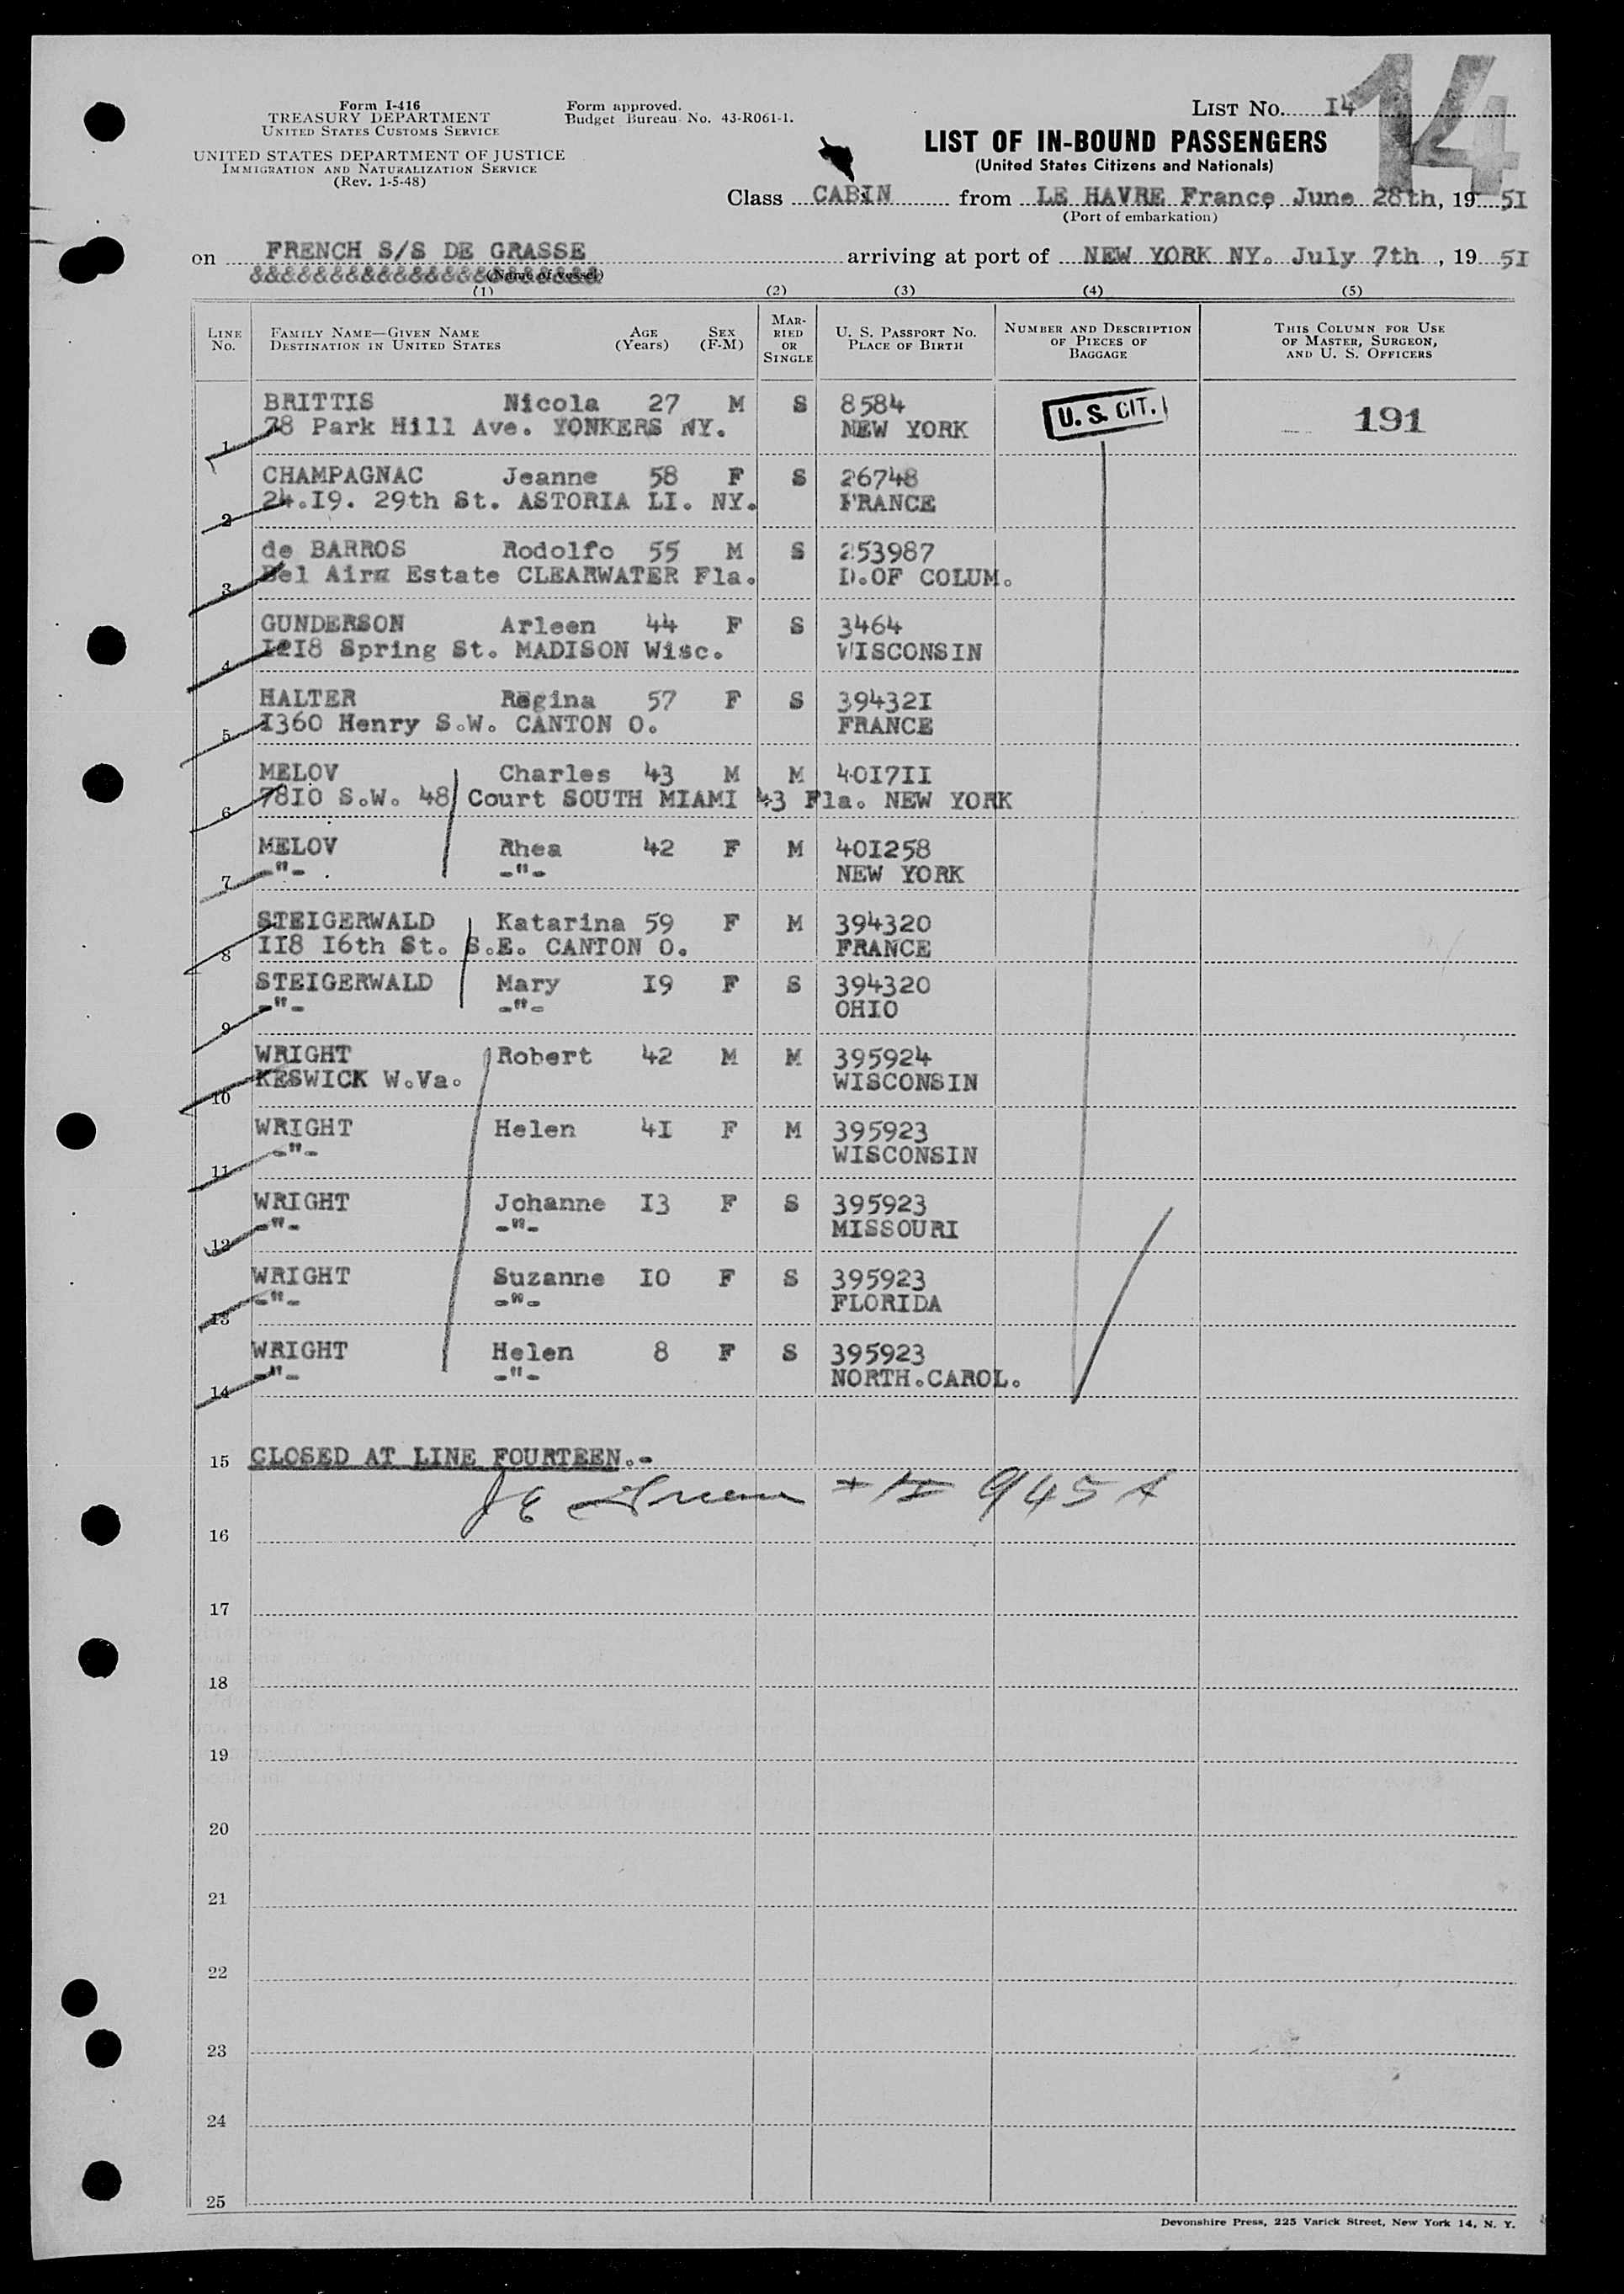 Form I-416
TREASURY DEPARTMENT
UNITED STATES CUSTOMS SERVICE
UNITED STATES DEPARTMENT OF JUSTICE
IMMIGRATION AND NATURALIZATION SERVICE
(Rev. 1-5-48)
Form approved.
Budget Bureau No. 43-R061-1.
LIST No. I4
14
LIST OF IN-BOUND PASSENGERS
(United States Citizens and Nationals)
Class CABIN from LE HAVRE France, June 28th, 19 5I
(Port of embarkation)
on FRENCH S/S DE GRASSE arriving at port of NEW YORK NY. July 7th , 19 5I
(Name of vessel)
(1) (2) (3) (4) (5)
LINE No. FAMILY NAME—GIVEN NAME DESTINATION IN UNITED STATES AGE (Years) SEX (F-M) MARRIED OR SINGLE U. S. PASSPORT NO. PLACE OF BIRTH NUMBER AND DESCRIPTION OF PIECES OF BAGGAGE THIS COLUMN FOR USE OF MASTER, SURGEON, AND U. S. OFFICERS
BRITTIS Nicola 27 M S 8584 U.S. CIT. 191
1 78 Park Hill Ave. YONKERS NY. NEW YORK
CHAMPAGNAC Jeanne 58 F S 26748
2 24.I9. 29th St. ASTORIA LI. NY. FRANCE
de BARROS Rodolfo 55 M S 253987
3 Bel Aire Estate CLEARWATER Fla. D.OF COLUM.
GUNDERSON Arleen 44 F S 3464
4 I2I8 Spring St. MADISON Wisc. WISCONSIN
HALTER Regina 57 F S 39432I
5 I360 Henry S.W. CANTON O. FRANCE
MELOV Charles 43 M M 40I7II
6 78IO S.W. 48 Court SOUTH MIAMI 43 Fla. NEW YORK
MELOV Rhea 42 F M 40I258
7 -"- -"- NEW YORK
STEIGERWALD Katarina 59 F M 394320
8 II8 I6th St. S.E. CANTON O. FRANCE
STEIGERWALD Mary I9 F S 394320
9 -"- -"- OHIO
WRIGHT Robert 42 M M 395924
10 KESWICK W.Va. WISCONSIN
WRIGHT Helen 4I F M 395923
11 -"- WISCONSIN
WRIGHT Johanne I3 F S 395923
12 -"- -"- MISSOURI
WRIGHT Suzanne IO F S 395923
13 -"- -"- FLORIDA
WRIGHT Helen 8 F S 395923
14 -"- -"- NORTH.CAROL.
15 CLOSED AT LINE FOURTEEN.-
945 A
16
17
18
19
20
21
22
23
24
25
Devonshire Press, 225 Varick Street, New York 14, N. Y.